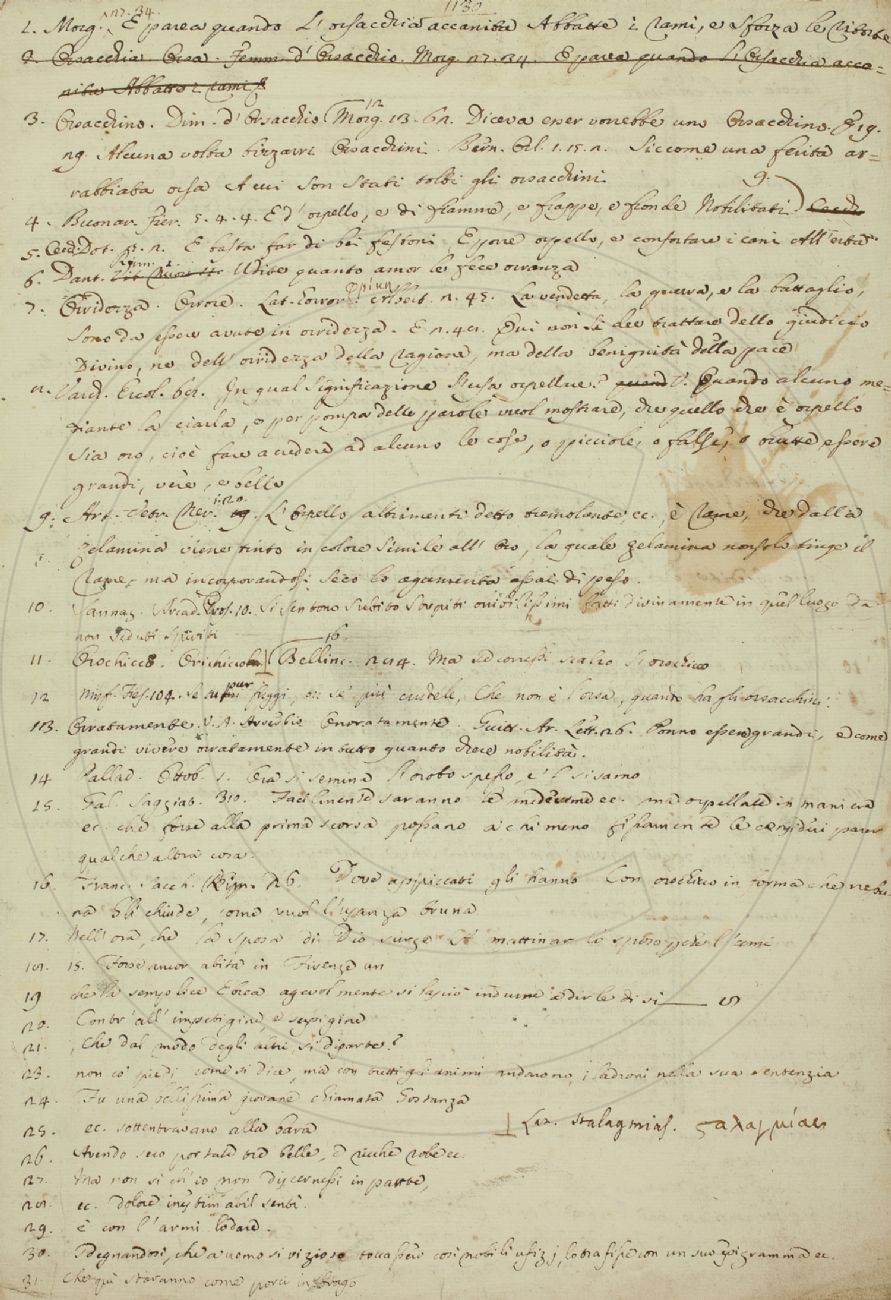 1130
1. Morg. 27. 34. E parea quando l'orsacchia accanita Abbatte i rami, e sforza le ritorte
2. Orsacchia Orsa. Femm. d'Orsacchio. Morg. 27. 34. E parea quando l'Orsacchia acca=
nita Abbatte i rami
3. Orsacchino. Dim. d'Orsacchio Morg. 13. 62. Diceva esser vorrebbe uno Orsacchino. E 19.
Alcuna volta bizzarri Orsacchini. Bern. Orl. 1. 15. 2. Siccome una ferita ar=
rabbiata orsa A cui son stati tolti gli orsacchini
4. Buonar. Fier. 5. 4. 4. E d'orpello, e di fiamme, e frappe, e fronde Nobilitati
5. Cecch. Dot. E basta far di bei festoni E porre orpello, e confortare i cani All'erta
6. Dant. Udite quanto amor le fece orranza
7. Orridezza. Orrore. Lat. horror. n. 45. La vendetta, la guerra, e la battaglia,
sono da essere avute in orridezza. E n. Qui non si dee trattare dello giudicio
Divino, ne dell'orridezza della ragione, ma della benignità della pace
8. Varch. Ercol. In qual significazione s'usa orpellare? Quando alcuno me=
diante la ciarla, o per pompa delle parole vuol mostrare, che quello che è orpello
sia oro, cioè fare accedere ad alcuno le cose, o picciole, o false, o brutte essere
grandi, vere, e belle
9. Art. Vetr. Ner. 120. L'Orpello altrimenti detto tremolante, ec., è Rame, che dalla
zelamina viene tinto in colore simile all'Oro, la quale zelamina non solo tinge il
Rame, ma incorporandosi seco lo agumenta assai di peso.
10. Sannaz. Arcad. Pros. 10. Si sentono subito strepiti orribilissimi fatti divinamente in quel luogo da
non veduti spiriti
11. Orochicco. Orichicco Bellinc. 16 Ma
12 Se tu pur fuggi, or se' più crudele, Che non è l'orsa, quando ha gli orsacchini.
113. Orratamente. V. A. Avverbio Onoratamente. Guitt. Ar. Lett. 26. Ponno essere grandi, e come
grandi vivere orratamente in tutto quanto chere nobilità.
14. Pallad. Ottob. 1. Ora si semina l'orobo spesso, e 'l sisamo
15. Gal. Saggiat. 310. Facilmente saranno le medesime ec. ma orpellate in maniera
ec. che forse alla prima scorsa possano a chi meno fissamente le consideri parer
qualche altra cosa.
16. Franc. Sacch. Rim. 26. Dove appiccati gli hanno Con orochicco in forma che nessu=
na gli chiude, come vuol l'usanza bruna
17. Nell'ora, che la sposa di Dio surge A mattinar lo sposo perchè l'ami
18. 15. Forse ancor abita in Firenze un
19 che la semplice Ebrea agevolmente si lasciò indurre a dirle di si
20. Contr'all'impetigine, e serpigine
21. , che dal modo degli altri si diparte?
23. non co' piedi, come si dice, ma con tutti gli animi andarono i ladroni nella sua sentenzia
24. Fu una bellissima giovane chiamata Gostanza
25. ec. sottentravano alla bara
Lat. stalagmias. ςαλαγμίας
26. Avendo seco portate tre belle, e ricche robe ec.
27. Ma non si ch'io non discernessi in parte,
28. ec. Dolore inestimabil senti.
29. e con l'armi lodare.
30. Sdegnandosi, che a uomo si vizioso toccassero così nobili ufizj, lo trafisse con un suo epigramma ec.
31 che quì staranno come porci in brago